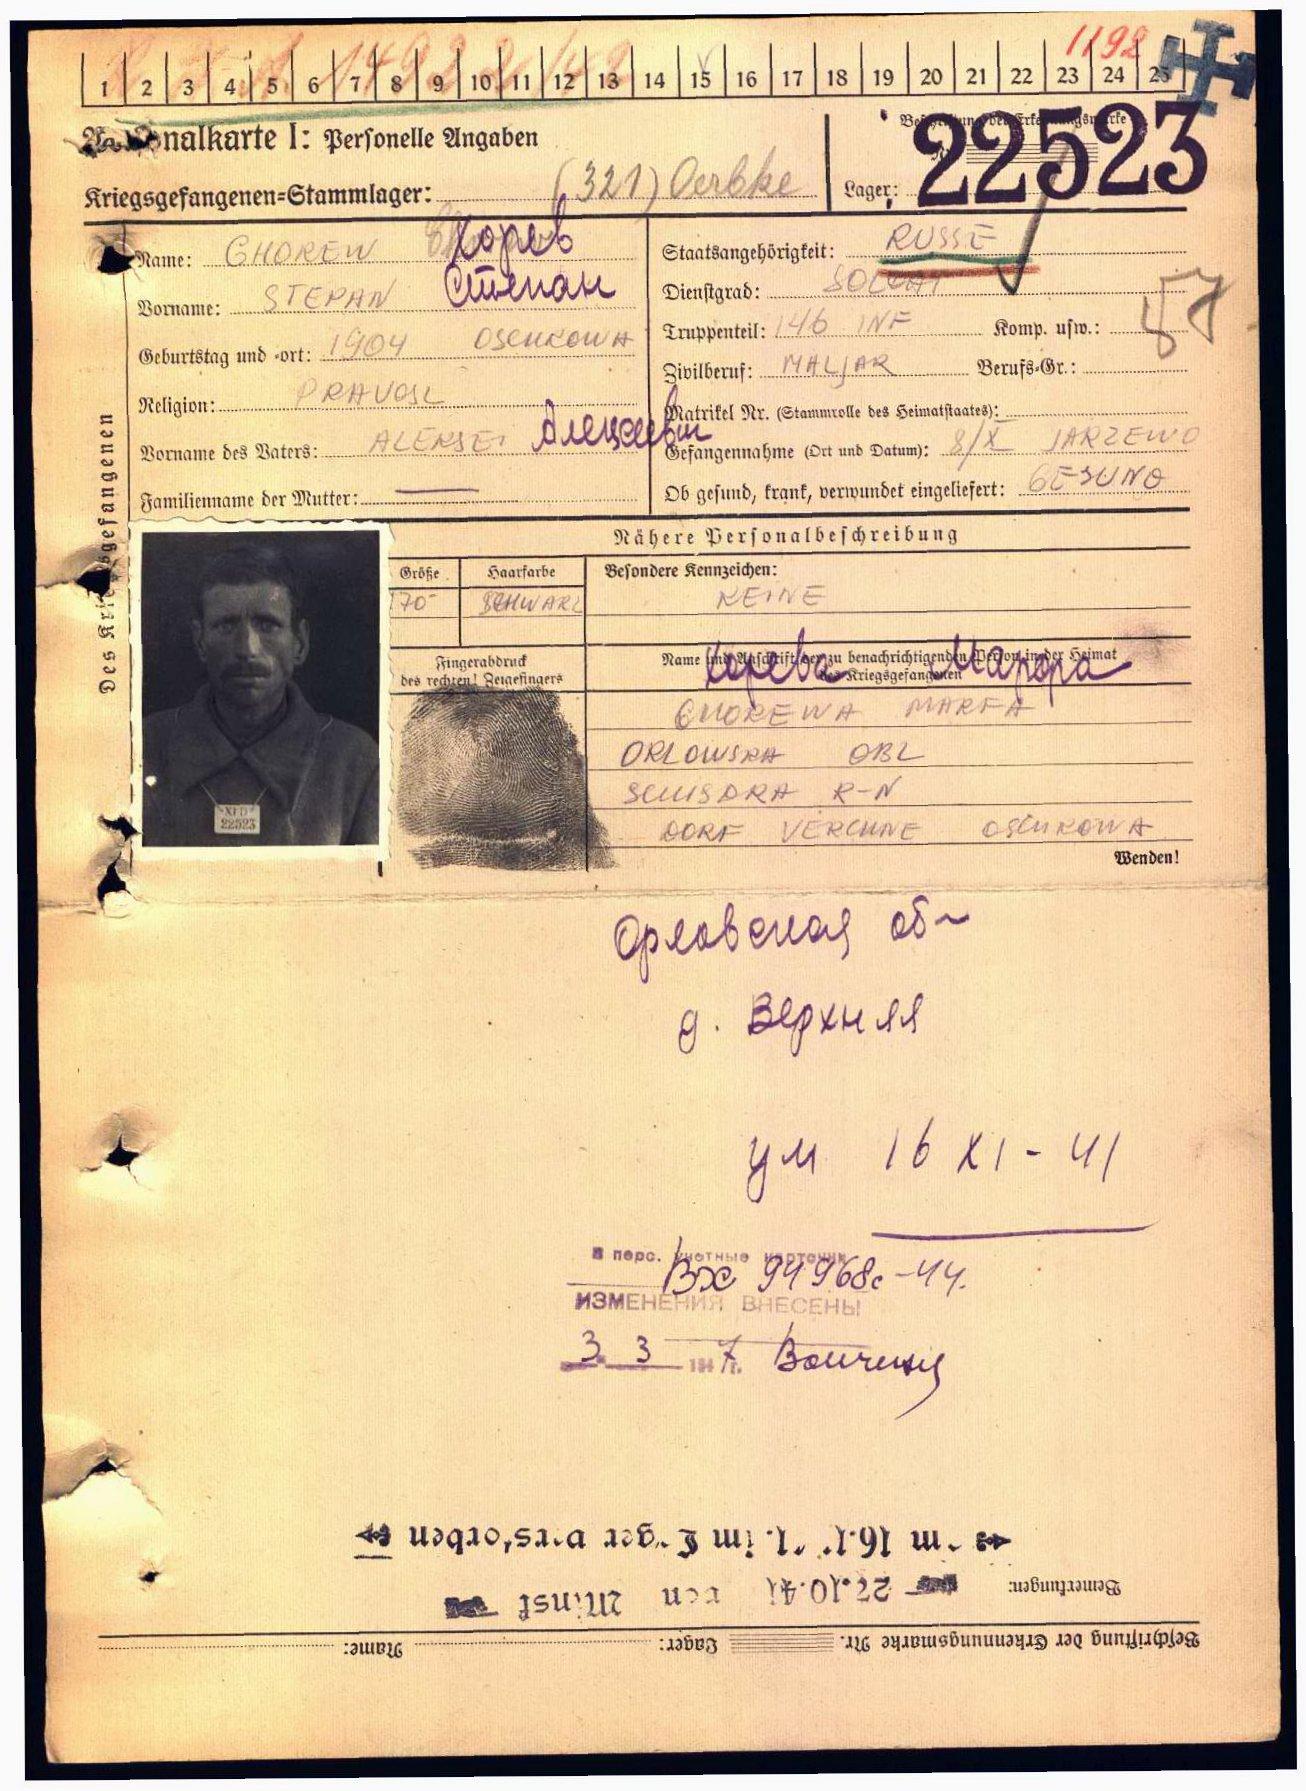 1198
1 2 3 4 5 6 7 8 9 10 11 12 13 14 15 16 17 18 19 20 21 22 23 24 25
nalkarte I: Personelle Angaben
Kriegsgefangenen-Stammlager: (321) Oerbke
Beschriftung der Erkennungsmarke
Lager: 22523
Name: CHOREW Хорев
Vorname: STEPAN Степан
Geburtstag und -ort: 1904 OSCHKOWA
Religion: PRAVOSL
Vorname des Vaters: ALEKSEI Алексеевич
Familienname der Mutter: —
Staatsangehörigkeit: RUSSE
Dienstgrad: SOLDAT
Truppenteil: 146 INF Komp. usw.:
57
Zivilberuf: MALJAR Berufs-Gr.:
Matrikel Nr. (Stammrolle des Heimatstaates):
Gefangennahme (Ort und Datum): 8/X JARZEWO
Ob gesund, krank, verwundet eingeliefert: GESUND
Des Kriegsgefangenen
Nähere Personalbeschreibung
Größe Haarfarbe Besondere Kennzeichen:
170 SCHWARZ KEINE
Fingerabdruck
des rechten! Zeigefingers
Name und Anschrift der zu benachrichtigenden Person in der Heimat
des Kriegsgefangenen
Хорева Марфа
CHOREWA MARFA
ORLOWSKA OBL
SCHISDRA R-N
DORF VERCHNE OSCHKOWA
Wenden!
XI D
22523
Орловская об
д. Верхняя
ум 16 XI - 41
В перс. учетные карточки
Вх 94968с-44.
ИЗМЕНЕНИЯ ВНЕСЕНЫ
3 3 1947 г.
Beschriftung der Erkennungsmarke Nr. Lager: Name:
Bemerkungen: 27.10.41 von Minsk
im Lager verstorben